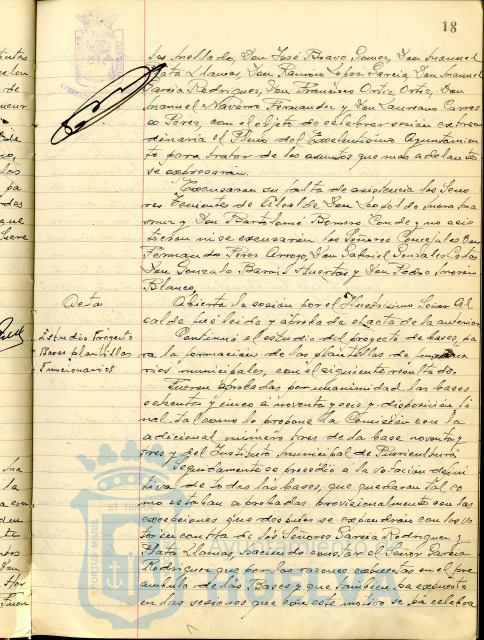 18
tes Mellado, Don José Bravo Gomez, Don Manuel
Plata Llamas, Don Ramon Lopez Garcia, Don Manuel
Garcia Rodriguez, Don Francisco Ortiz Ortiz, Don
Manuel Navarro Fernandez y Don Laureano Carras
co Perez, con el objeto de celebrar sesión extraor
dinaria el Pleno del Excelentísimo Ayuntamien
to para tratar de los asuntos que mas adelante
se expresarán.
Excusaron su falta de asistencia los Seno
res Tenientes de Alcalde Don Leopoldo
y Don Bartolomé Romero Conde y no asis
tieron ni se excusaron los Señores Concejales Don
Fernando Perez Arroyo, Don Gabriel Gonzalez
Don Gonzalo Barrio Huertas y Don Pedro Moreno
Blanco.
Acta
Abierta la sesión por el Ilustrisimo Señor Al
calde fué leida y aprobada el acta de la anterior
Estudio Proyecto
Bases plantillas
Funcionarios
Continuó el estudio del proyecto de bases pa
ra la formación de las plantillas de funciona
rios municipales, con el siguiente resultado.
Fueron aprobadas por unanimidad las bases
ochenta y cinco a noventa y ocho y disposición fi
nal tal como lo propone la Comisión con la
adicional número tres de la base noventa y
tres y del Instituto municipal de Puericultura
Seguidamente se procedió a la votación defini
tiva de todas las bases, que quedaron tal co
mo estaban aprobadas provisionalmente con las
excepciones que despues se expondran con los vo
tos en contra de los Señores Garcia Rodriguez y
Plata Llamas, haciendo constar el Señor Garcia
Rodriguez que por las razones expuestas en el pre
ambulo de las Bases y que tambien ha expuesto
en las sesiones que con este motivo se ha celebra